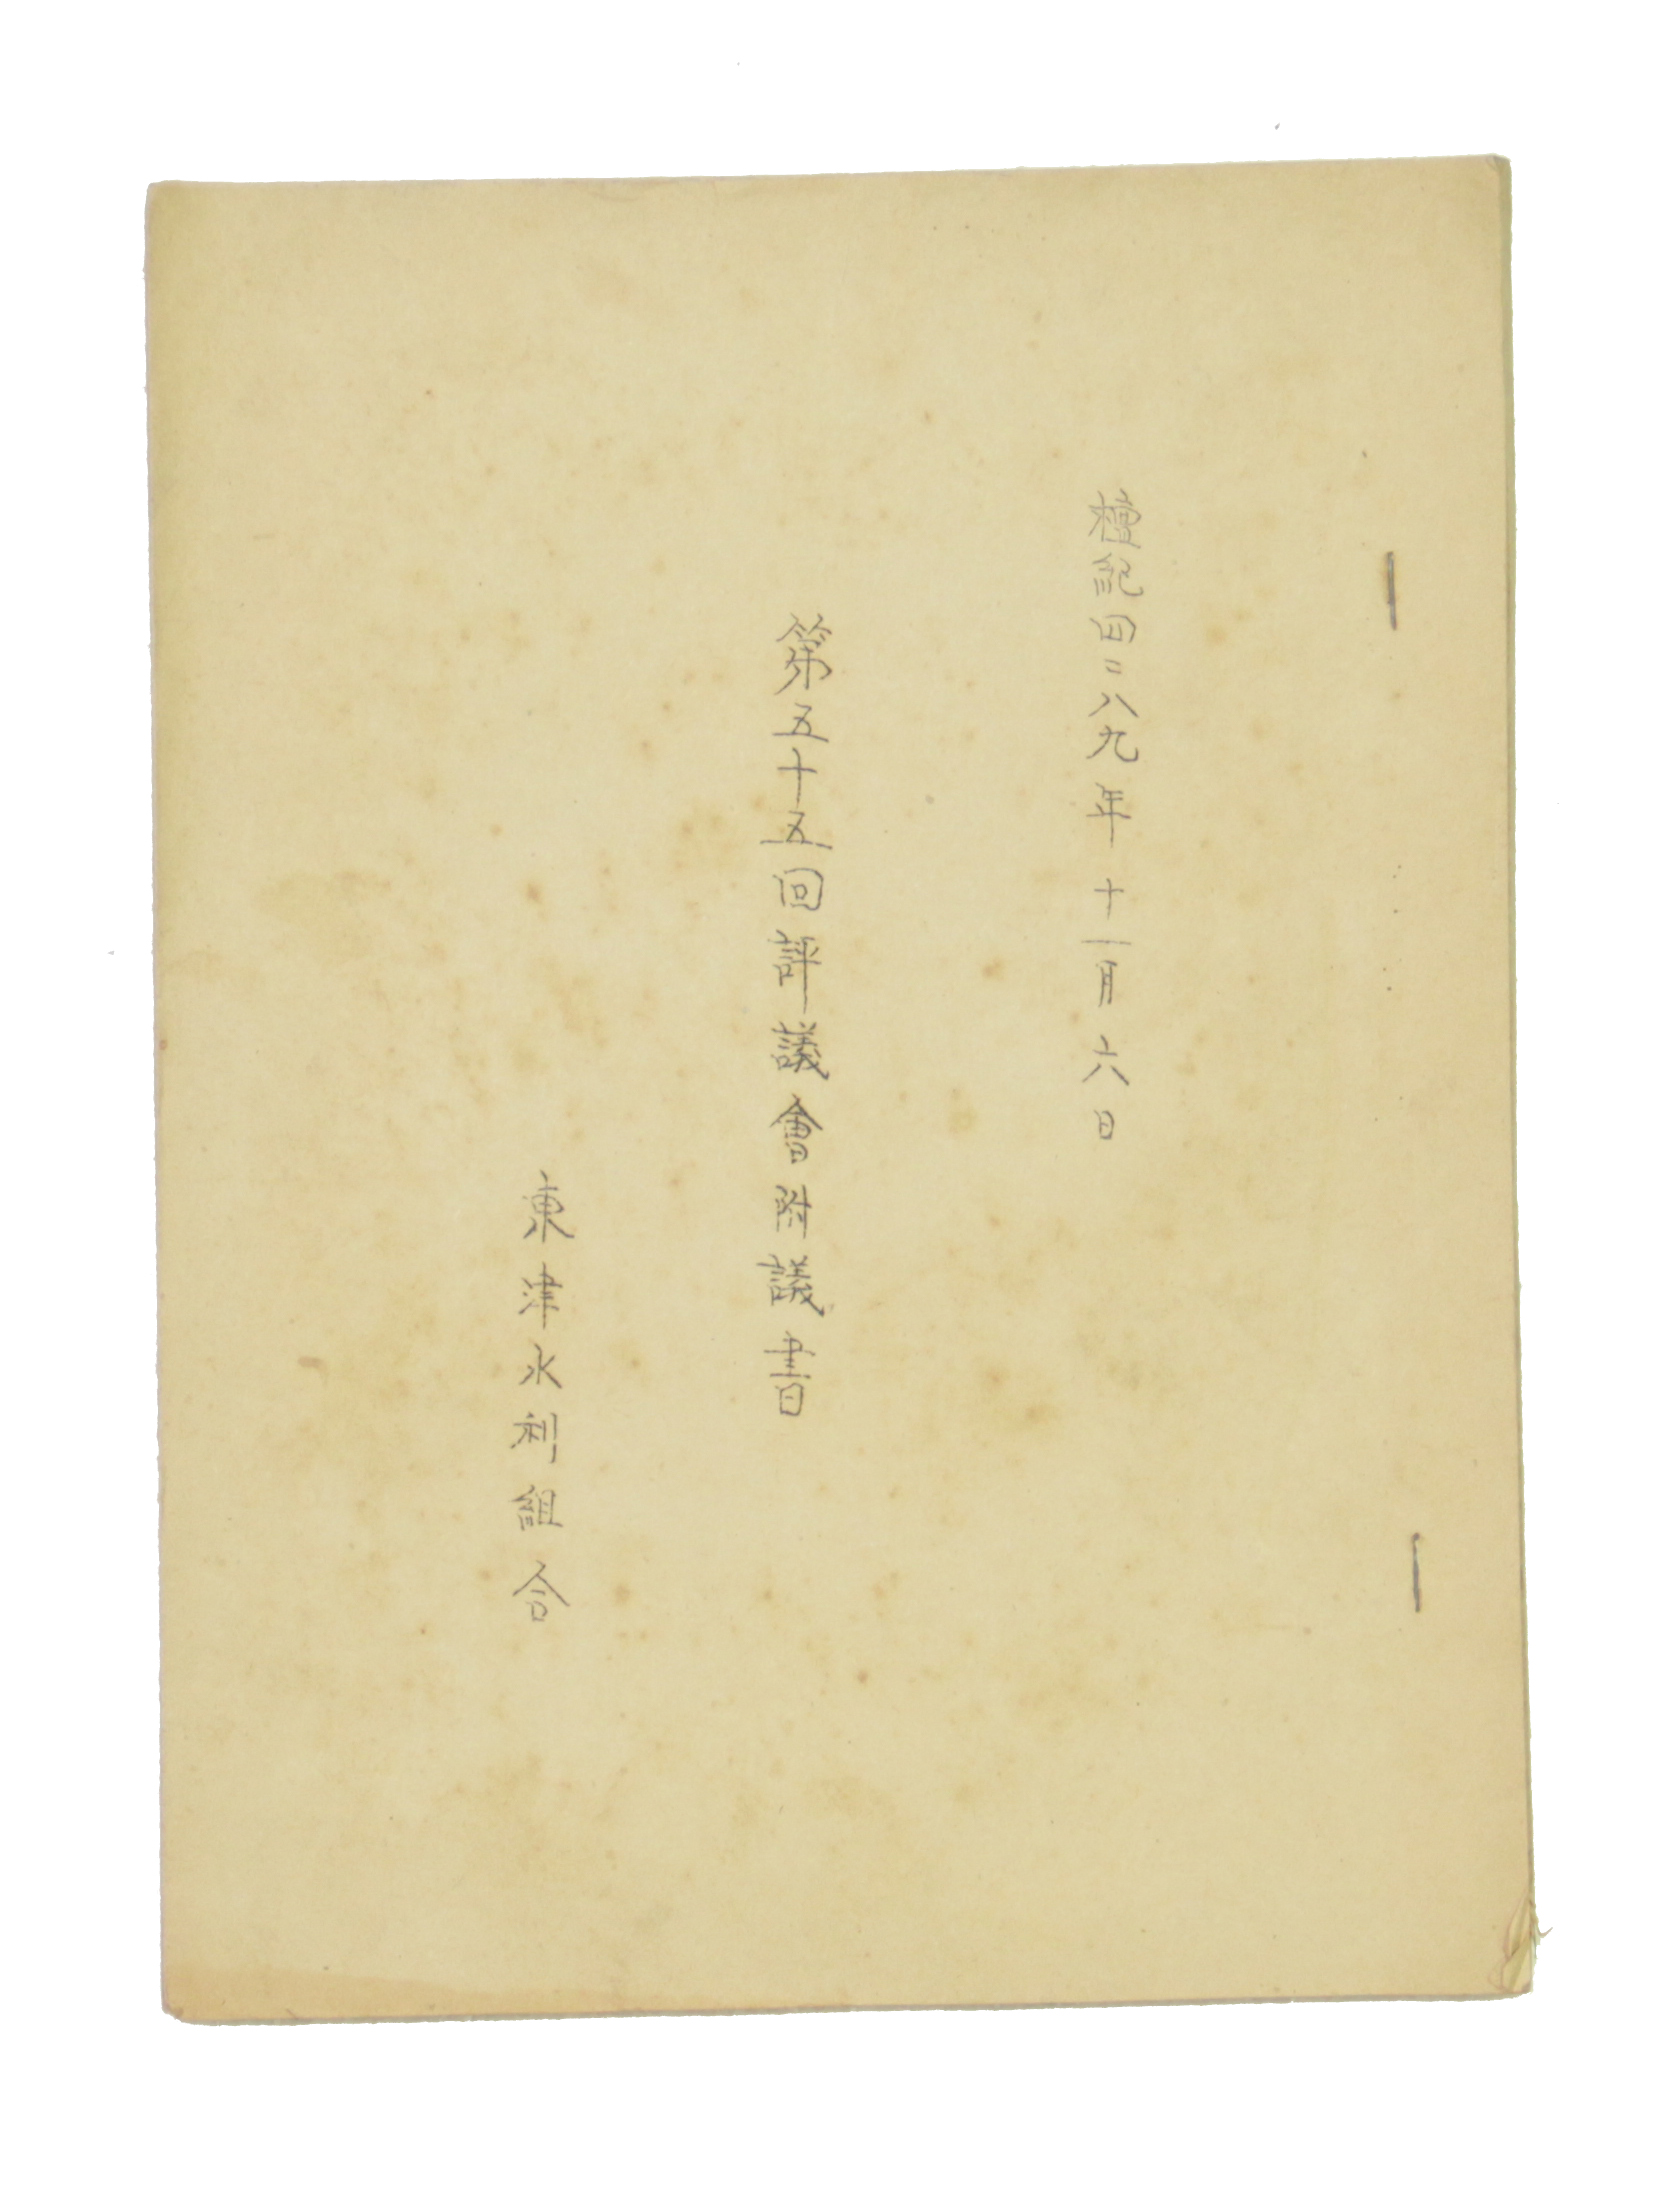 檀紀四二八九年十一月六日
第五十五回評議會附議書
東津水利組合